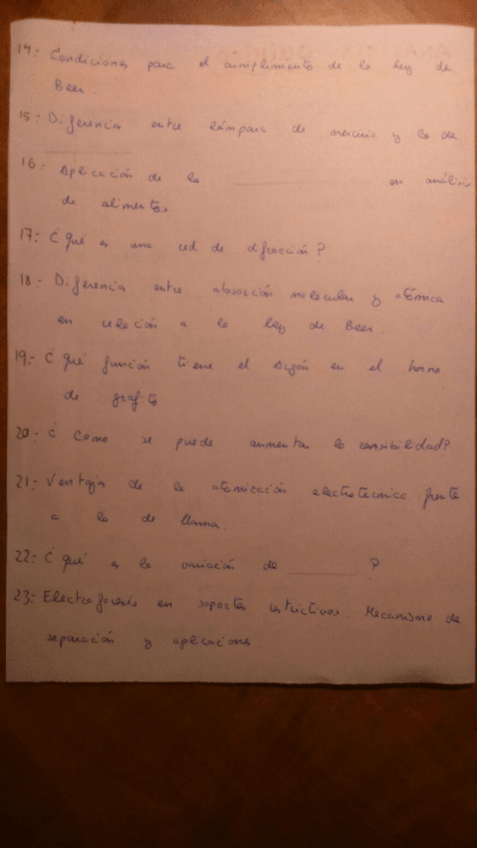 14.- Condiciones para el cumplimento de la ley de
Beer.
15.- Diferencia entre lámpara de mercurio y la de
16.- Aplicación de la ___ en análisis
de alimentos
17.- ¿Qué es una red de difracción?
18.- Diferencia entre absorción molecular y atómica
en relación a la ley de Beer.
19.- ¿Qué función tiene el Argón en el horno
de grafito
20.- ¿Como se puede aumentar la sensibilidad?
21.- Ventajas de la atomización electrotermica frente
a la de llama.
22.- ¿Qué es la variación de ___ ?
23.- Electroforesis en soportes restrictivos. Mecanismo de
separación y aplicaciones